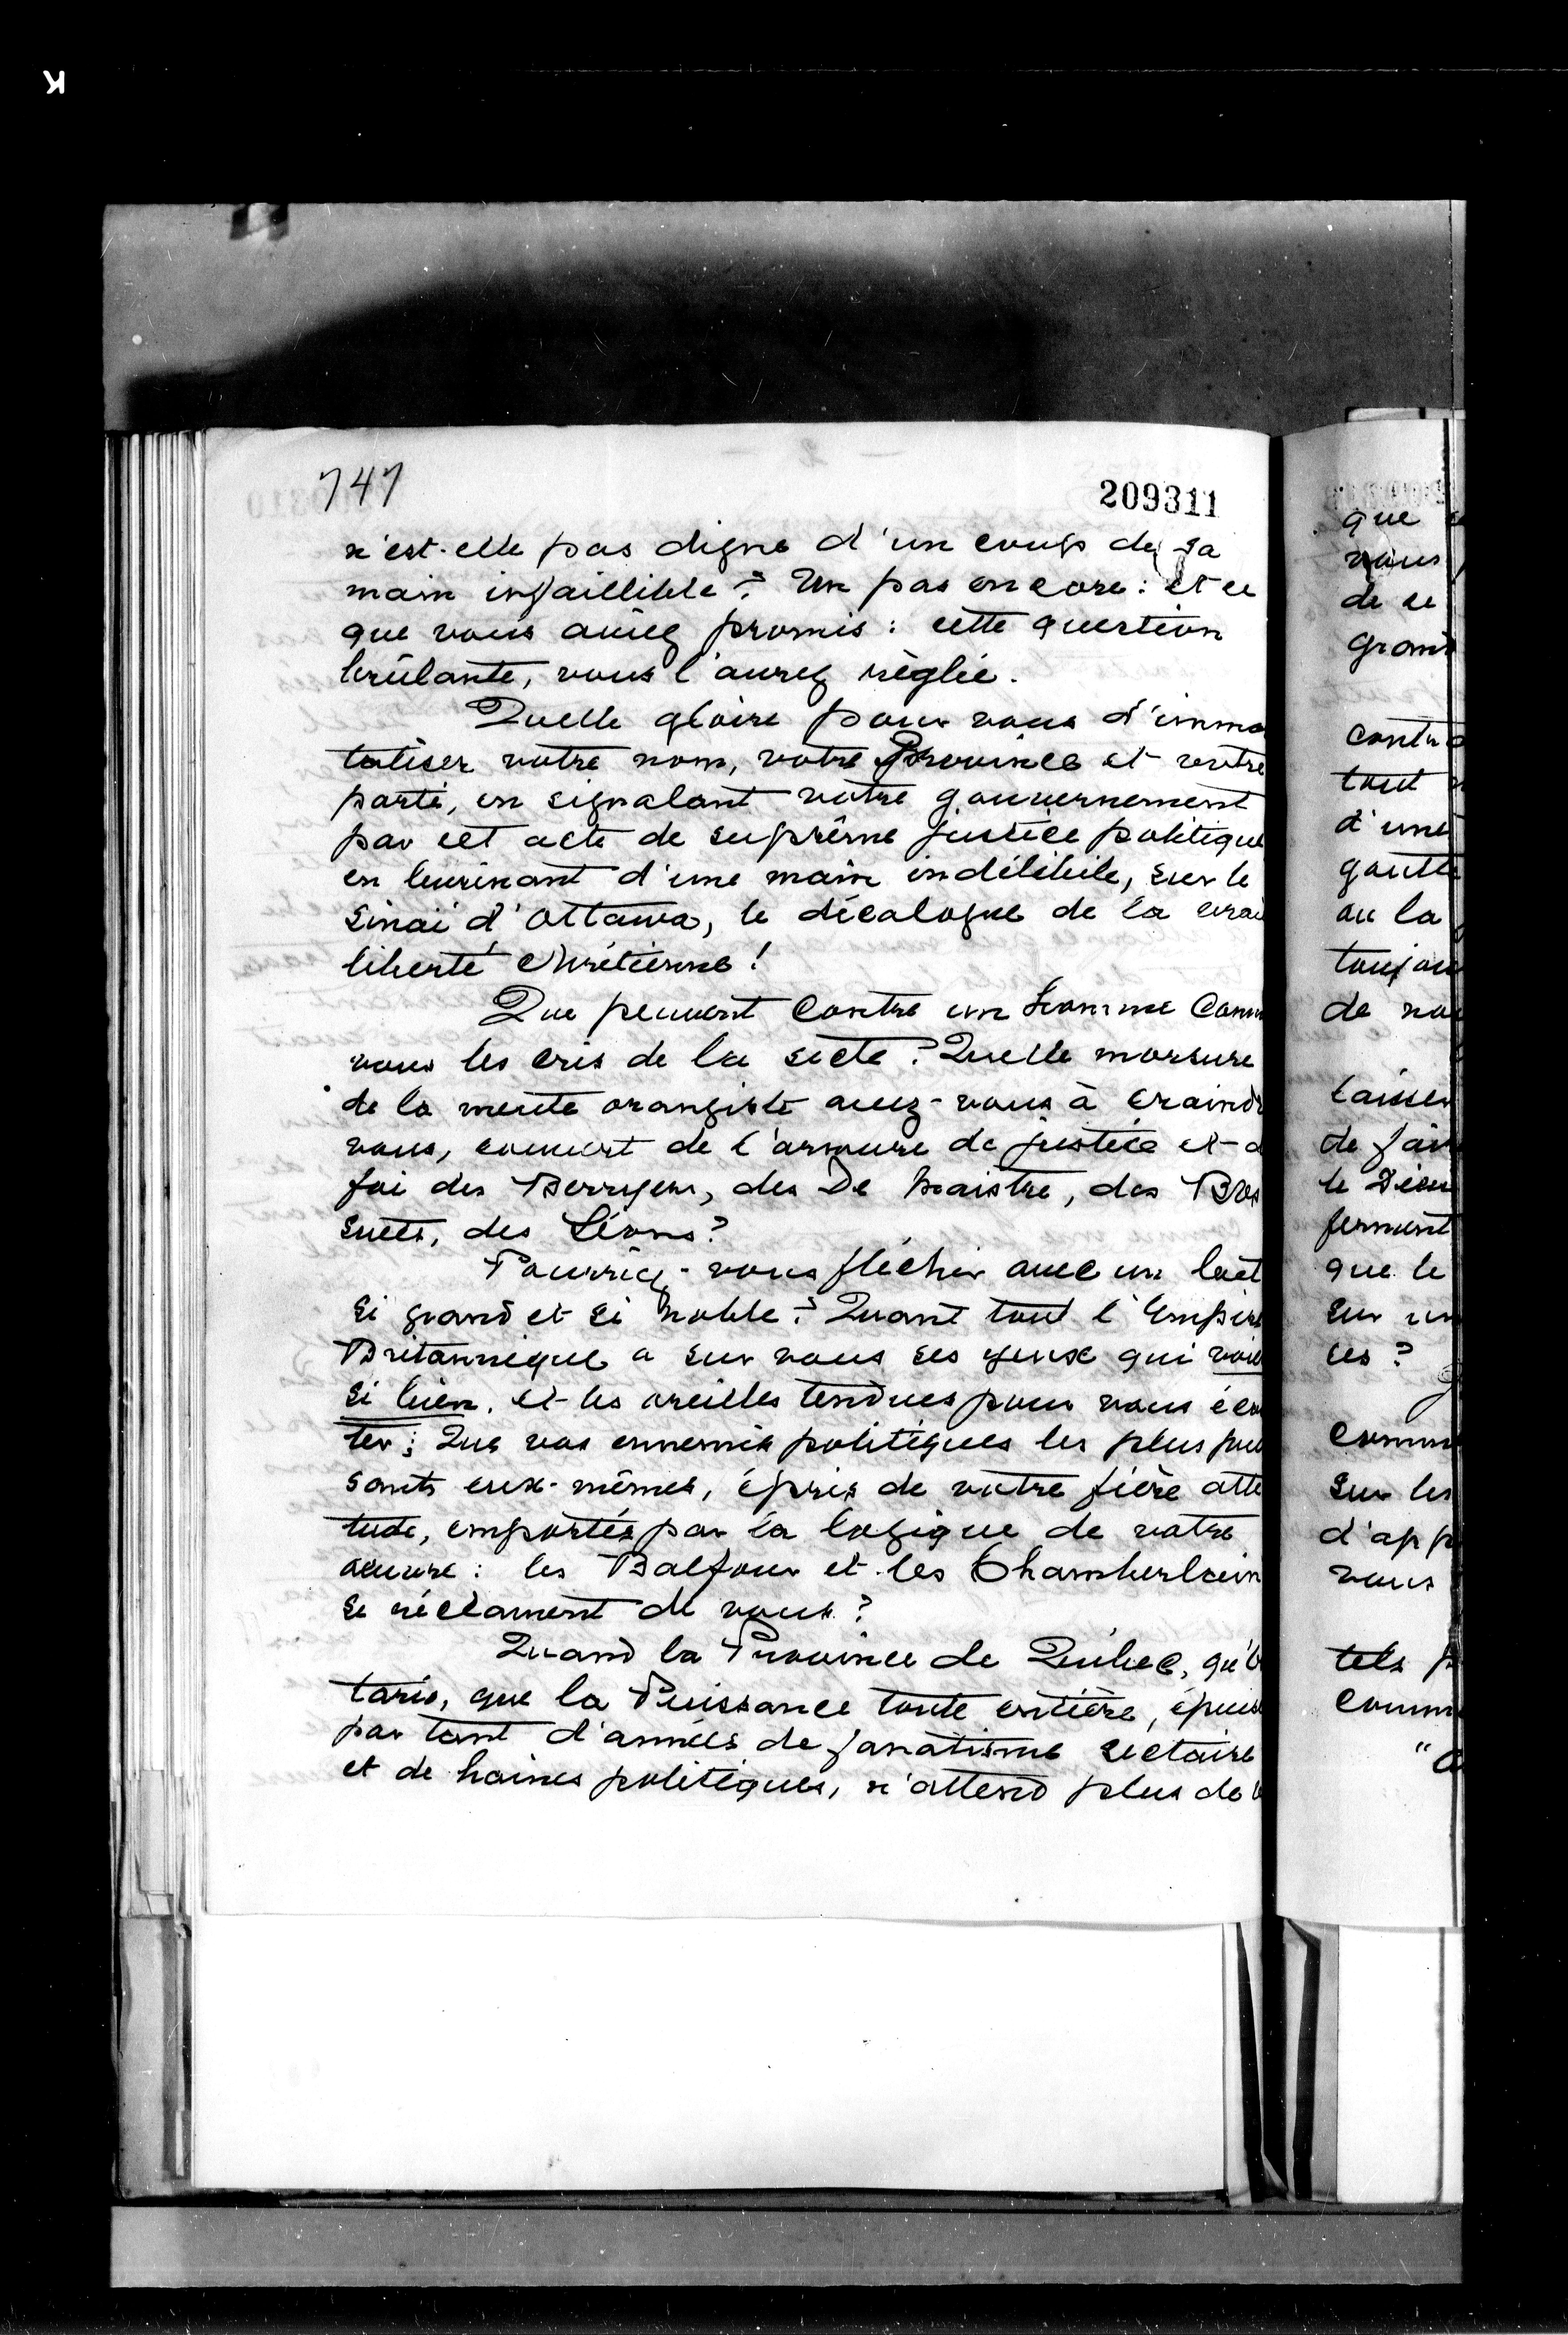 747
209311
n'est-elle pas digne d'un coup de sa
main infaillible? Un pas encore: et ce
que vous aviez promis: cette question
brûlante, vous l'aurez réglée.
Quelle gloire pour vous d'immo
taliser votre nom, votre Province et votre
parti, en signalant votre gouvernement
par cet acte de suprême justice politique
en burinant d'une main indélibile, sur le
Sinaï d'Ottawa, le décalogue de la vrai
liberté chrétienne!
Que peuvent contre un homme Comm
vous les cris de la secte? Quelle morsure
de la meute orangiste avez-vous à craind
vous, couvert de l'armure de justice et d
foi des Berryer, des De Maistre, des Bos
suets, des Léons?
Pourriez-vous fléchir avec un but
si grand et si noble? Quant tout l'Empire
Britannique a sur vous ses yeux qui voie
si bien, et les oreilles tendues pour vous écou
ter; Que vos ennemis politiques les plus puis
sants eux-mêmes, épris de votre fière atti
tude, emportés par la logique de votre
oeuvre: les Balfour et les Chamberlain
se réclament de vous?
Quand la Province de Québec, qu'O
tario, que la Puissance toute entière, épuis
par tant d'années de fanatisme sectaire
et de haines politiques, n'attend plus de v
que
vous
de ce
grand
contr
tout
d'une
goutte
ou la
toujou
de no
laisser
de fai
le Dieu
ferment
que le
sur un
ces?
Comm
sur les
d'app
vous
tels
comm